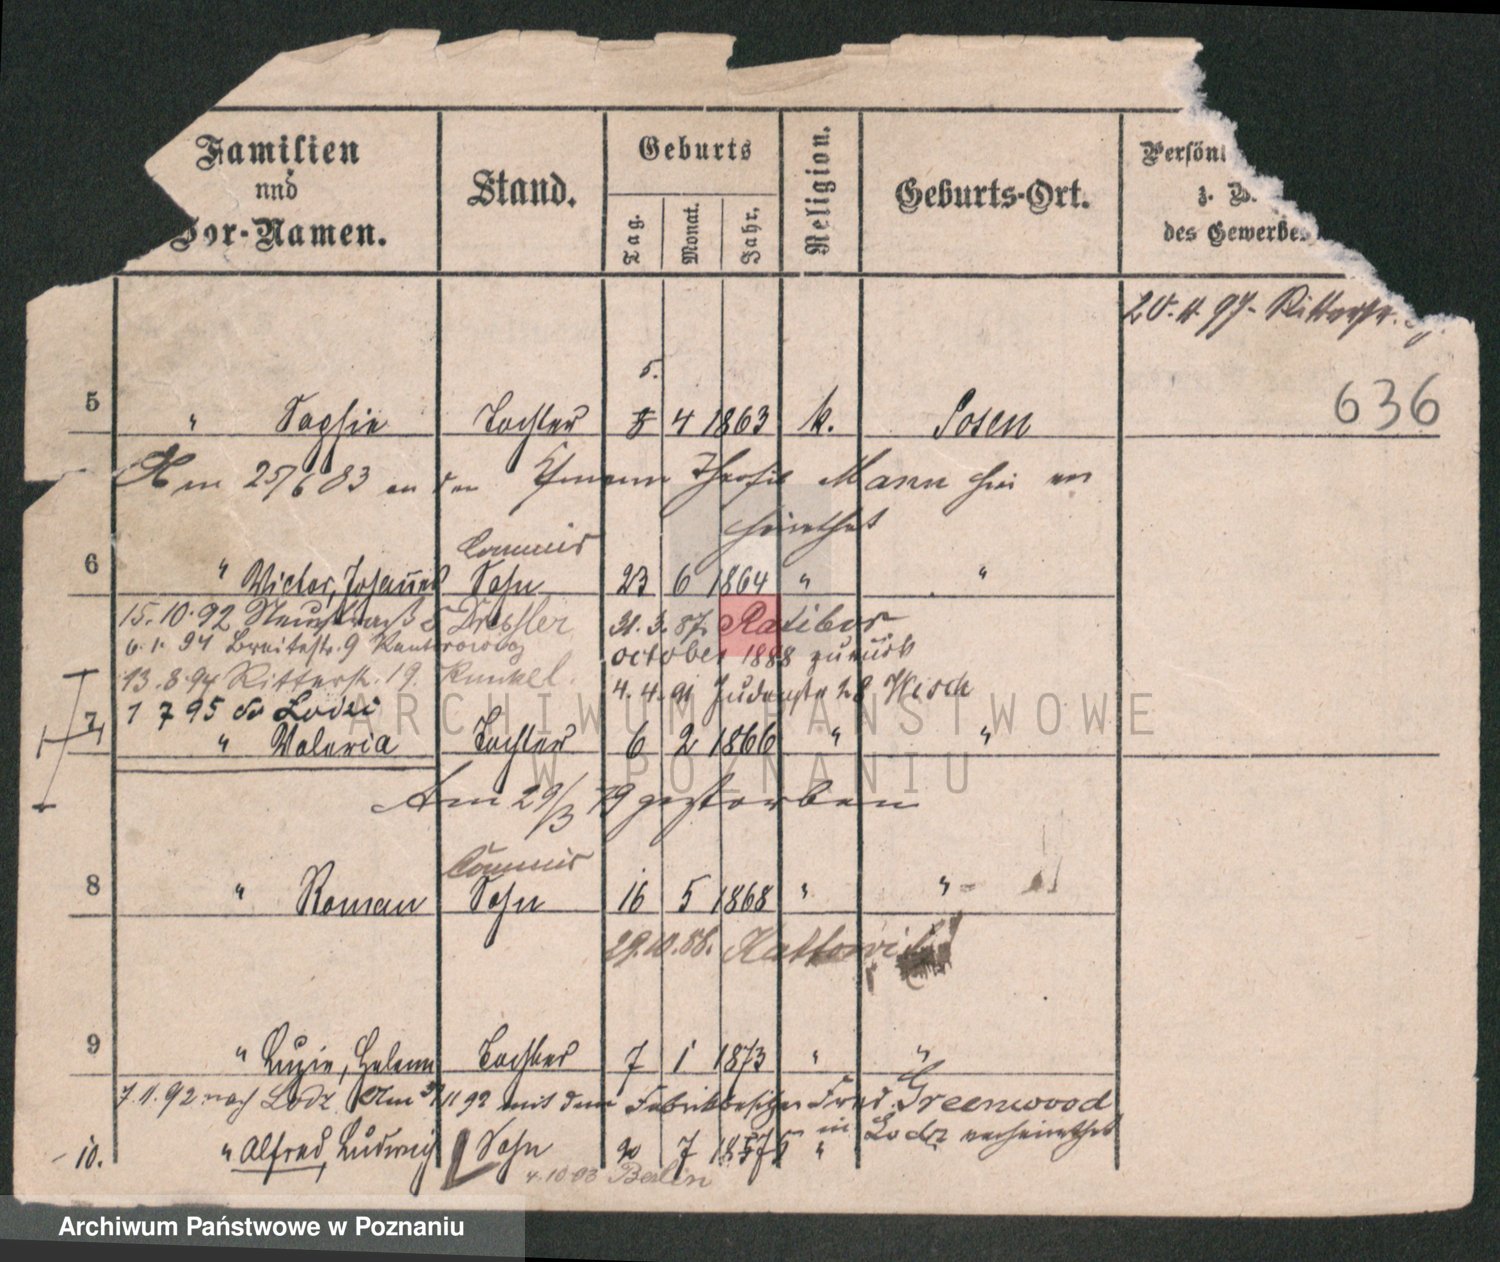 Familien
und
Vor-Namen.
Stand.
Geburts
Tag.
Monat.
Jahr.
Religion.
Geburts-Ort.
Persönl
z. B.
des Gewerbes
20. 11. 97. Ritterstr.
636
5.
5 " Sophie Tochter 8 4 1863 k. Posen
Am 25/6 83 an den Theofil Mann hier
6 Commis
" Victor, Johannes Sohn 23 6 1864 " "
15.10.92 Neuestraß 5 Dressler 31.3.87. Ratibor
6.1.94 Breitestr. 9 Kantorowicz october 1888 zurück
13.8.94 Ritterstr. 19. Kunkel. 4.4.91 Judenstr 28 Wisch
1 7 95 Lodz
7 " Valeria Tochter 6 2 1866 " "
Am 29/3 79 gestorben
Commis
8 " Roman Sohn 16 5 1868 " "
29.10.88. Kattowitz
9 " Luzie, Helene Tochter 7 1 1873 " "
7.11.92 nach Lodz Am 11 92 mit dem Fabrikbesitzer Fred. Greenwood
in Lodz verheirathet
10. " Alfred, Ludwig Sohn 20 7 1875 "
4.10.93 Berlin
ARCHIWUM PAŃSTWOWE
W POZNANIU
Archiwum Państwowe w Poznaniu